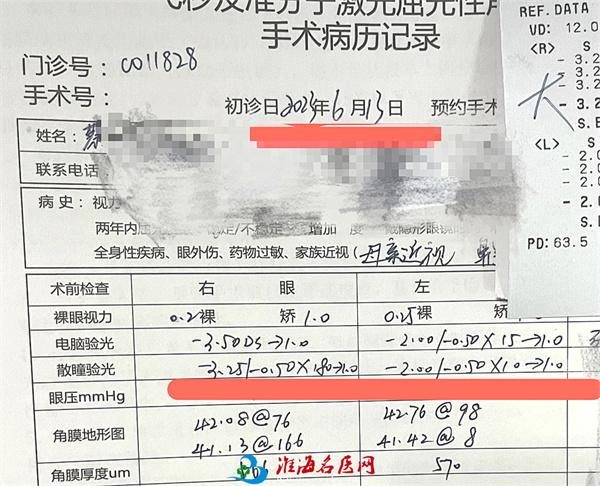 飞秒及准分子激光屈光性
手术病历记录
门诊号：C011828
手术号：
初诊日2023年6月13日 预约手术
姓名：
联系电话：
病史：视力
两年内屈光 稳定/不稳定 增加 度 戴隐形眼镜
全身性疾病、眼外伤、药物过敏、家族近视（母亲近视
术前检查 右 眼 左
裸眼视力 0.2裸 矫1.0 0.25裸 矫1.0
电脑验光 -3.50DS→1.0 -2.00/-0.50×15→1.0
散瞳验光 -3.25/-0.50×180→1.0 -2.00/-0.50×10→1.0
眼压mmHg
角膜地形图 42.08@76 42.76@98
41.13@166 41.42@8
角膜厚度um 570
REF. DATA
VD: 12.0
<R> S
- 3.2
- 3.2
- 3.2
- 3.2
S.E
<L> S
- 2.0
- 2.0
- 2.0
S.E
PD: 63.5
淮海名医网